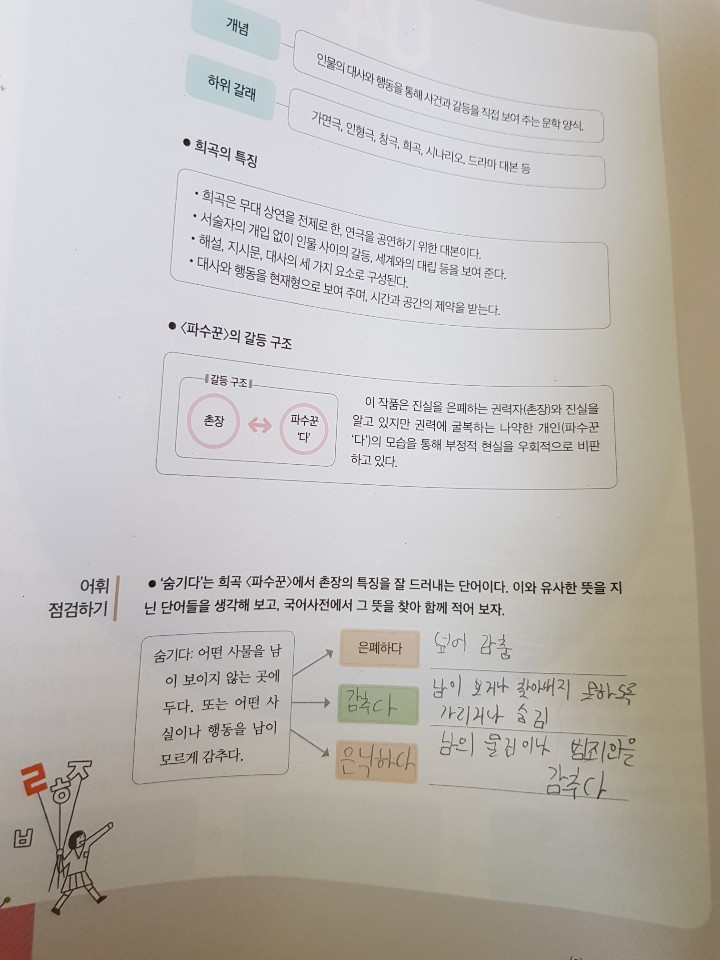 개념
인물의 대사와 행동을 통해 사건과 갈등을 직접 보여 주는 문학 양식.
하위 갈래
가면극, 인형극, 창극, 희곡, 시나리오, 드라마 대본 등
● 희곡의 특징
• 희곡은 무대 상연을 전제로 한, 연극을 공연하기 위한 대본이다.
• 서술자의 개입 없이 인물 사이의 갈등, 세계와의 대립 등을 보여 준다.
• 해설, 지시문, 대사의 세 가지 요소로 구성된다.
• 대사와 행동을 현재형으로 보여 주며, 시간과 공간의 제약을 받는다.
● 〈파수꾼〉의 갈등 구조
갈등 구조
촌장 ↔ 파수꾼
'다'
이 작품은 진실을 은폐하는 권력자(촌장)와 진실을
알고 있지만 권력에 굴복하는 나약한 개인(파수꾼
'다')의 모습을 통해 부정적 현실을 우회적으로 비판
하고 있다.
어휘
점검하기
● '숨기다'는 희곡 〈파수꾼〉에서 촌장의 특징을 잘 드러내는 단어이다. 이와 유사한 뜻을 지
닌 단어들을 생각해 보고, 국어사전에서 그 뜻을 찾아 함께 적어 보자.
숨기다: 어떤 사물을 남
이 보이지 않는 곳에
두다. 또는 어떤 사
실이나 행동을 남이
모르게 감추다.
은폐하다
덮어 감춤
감추다
남이 보거나 찾아내지 못하도록
가리거나 숨김
은닉하다
남의 물건이나 범죄인을
감추다
ㄹ ㅎ ㅈ
ㅂ